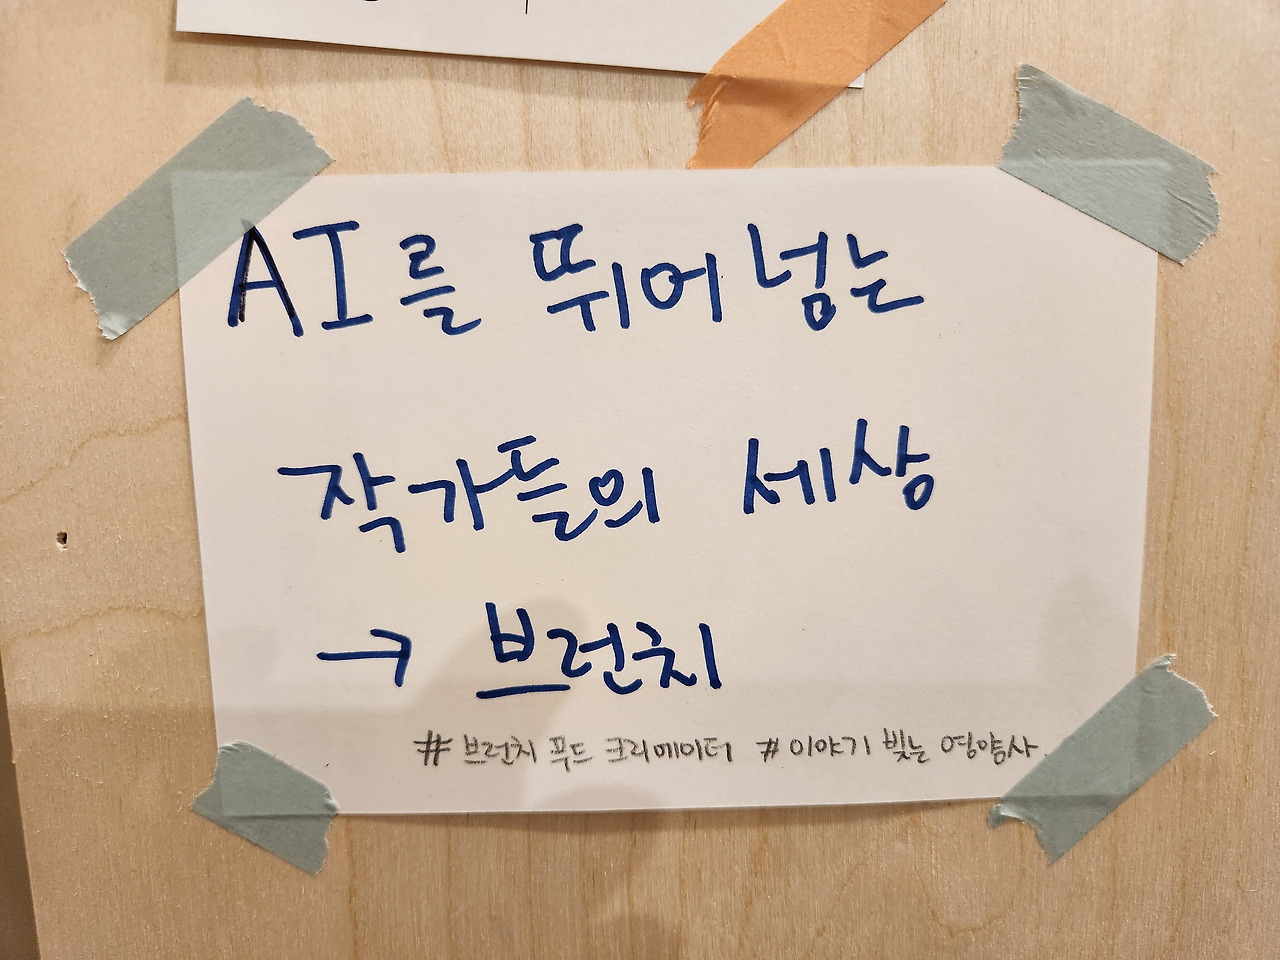 AI를 뛰어넘는
작가들의 세상
→ 브런치
# 브런치 푸드 크리에이터 # 이야기 빚는 영양사